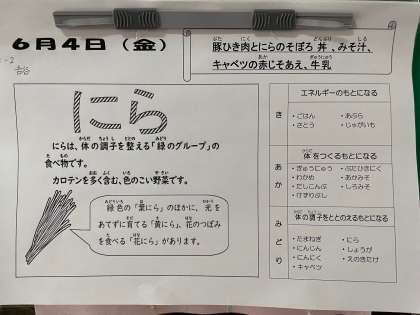 6月4日（金）
豚ひき肉とにらのそぼろ丼、みそ汁、
キャベツの赤じそあえ、牛乳
にら
にらは、体の調子を整える「緑のグループ」の
食べ物です。
カロテンを多く含む、色のこい野菜です。
緑色の「葉にら」のほかに、光を
あてずに育てる「黄にら」、花のつぼみ
を食べる「花にら」があります。
き
エネルギーのもとになる
・ごはん ・あぶら
・さとう ・じゃがいも
あか
体をつくるもとになる
・ぎゅうにゅう ・ぶたひきにく
・わかめ ・あかみそ
・だしこんぶ ・しろみそ
・けずりぶし
みどり
体の調子をととのえるもとになる
・たまねぎ ・にら
・にんじん ・しょうが
・にんにく ・えのきたけ
・キャベツ